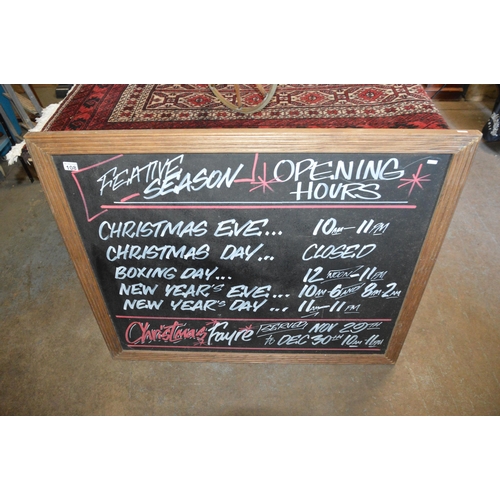 FESTIVE SEASON OPENING HOURS
CHRISTMAS EVE... 10AM-11PM
CHRISTMAS DAY... CLOSED
BOXING DAY... 12 NOON-11PM
NEW YEAR'S EVE... 10AM-6 AND 8PM-2AM
NEW YEAR'S DAY... 11AM-11PM
Christmas Fayre SERVED NOV 29TH
TO DEC 30TH 10AM-11PM